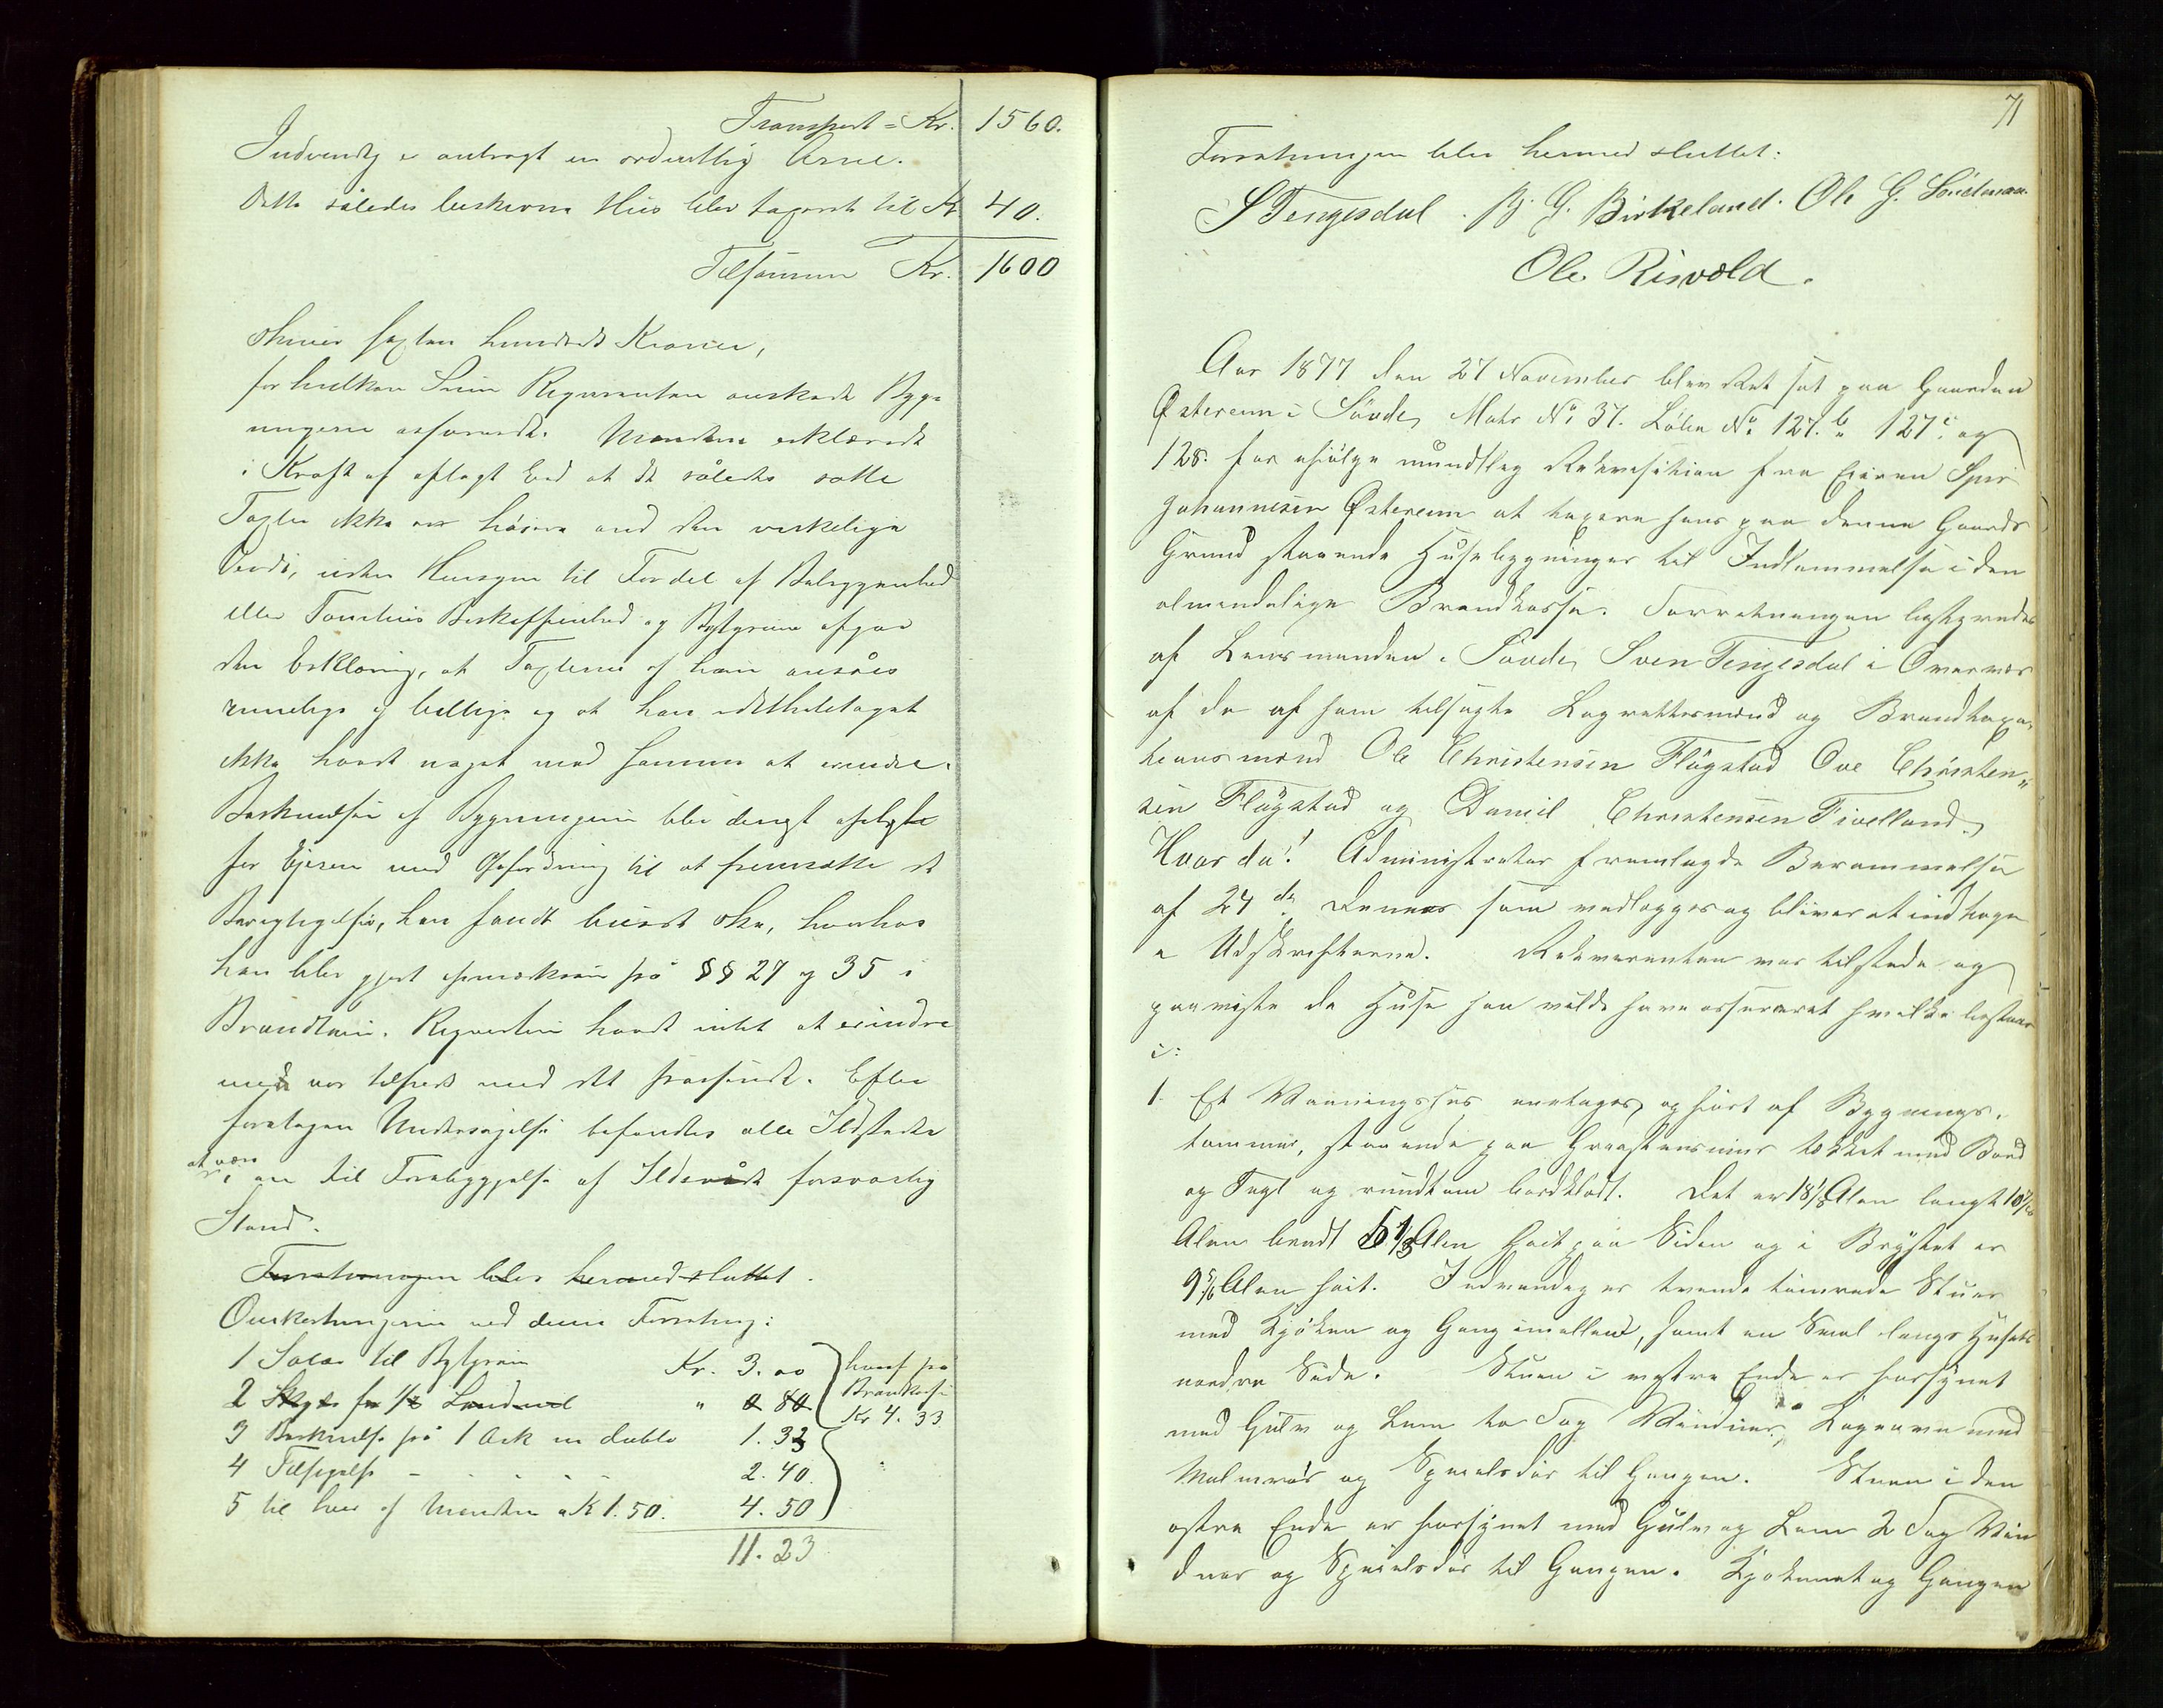 Transport = Kr. 1560.
Indvendig er anbragt en ordentlig Arne.
Dette således beskrevne Hus blev taxeret til Kr 40.
Tilsammen Kr. 1600
skriver sexten hundrede Kroner,
for hvilken Sum Reqvirenten ønskede Byg-
ningerne assurerede. Mændene erklærede
i Kraft af aflagt Ed at de således satte
Taxter ikke var høiere end den virkelige
Værdi, uden Hensyn til Fordel af Beliggenhed
eller Tomtens Beskaffenhed og Bestyreren afgav
den Erklæring, at Taxterne af ham ansåes
rimelige og billige og at han idetheletaget
ikke havde noget mod samme at erindre.
Beskrivelsen af Bygningerne blev dernæst oplæst
for Ejeren med Opfordring til at fremsætte de
Berigtigelser, han fandt burde ske, hvorhos
han blev gjort opmærksom på §§ 27 og 35 i
Brandloven. Reqvirenten havde intet at erindre
men var tilfreds med det passerede. Efter
foretagen Undersøgelse befandtes alle Ildsteder
at være i en til Forebyggelse af Ildsvåde forsvarlig
Stand.
Forretningen blev hermed sluttet.
Omkostningerne ved denne Forretning:
1 Salær til Bestyreren Kr. 3.00
2 Skyds for 1/2 Landmil " 0 80
3 Beskrivelse på 1 Ark in duplo 1.33
4 Tilsigelse - - - - - 2.40.
5 til hver af Mændene a Kr 1.50. 4.50
hvoraf på
Brankassen
Kr 4.33
11.23
71
Forretningen blev hermed sluttet:
S Tengesdal. B. G. Birkeland. Ole G.
Ole Risvold.
Aar 1877 den 27 November blev Ret sat paa Gaarden
Østereim i Søvde, Matr No 37. Løbe No 127.b 127c. og
128. for ifølge mundtlig Rekvisition fra Eieren
Johannesen Østereim at taxere hans paa denne Gaards
Grund staaende Husebygninger til Indlemmelse i den
almindelige Brandkasse. Forretningen bestyredes
af Lensmanden i Søvde, Sven Tengesdal i Overvær
af de af ham tilsagte Lagrettesmænd og Brandtaxa-
tionsmænd Ole Christensen Fløgstad Ove Christen-
sen Fløgstad og Daniel Christensen Fivelland.
Hvor da! Administrator fremlagde Berammelse
af 24de Dennes som vedlægges og bliver at indtage
i Udskrifterne. Rekvirenten var tilstede og
paaviste de Huse han vilde have assureret hvilke bestaar
i:
1. Et Vaaningshus eenetages, opført af Bygnings-
tømmer, staaende paa Graastensmur tækket med Bord
og Tagl og rundtom bordklædt. Det er 18 1/8 Alen langt 10
Alen bredt 5 1/8 Alen høit paa Siden og i Brystet er
9 5/6 Alen høit. Indvendig er tvende tømrede Stuer
med Kjøken og Gang imellem, samt en Sval langs Husets
nordre Side. Stuen i vestre Ende er forsynet
med Gulv og Lem to Fag Vinduer, Kogeovn med
Malmrør og Speielsdør til Gangen. Stuen i den
østre Ende er forsynet med Gulv og Lem 2 Fag Vin
duer og Speielsdør til Gangen. Kjøkenet og Gangen